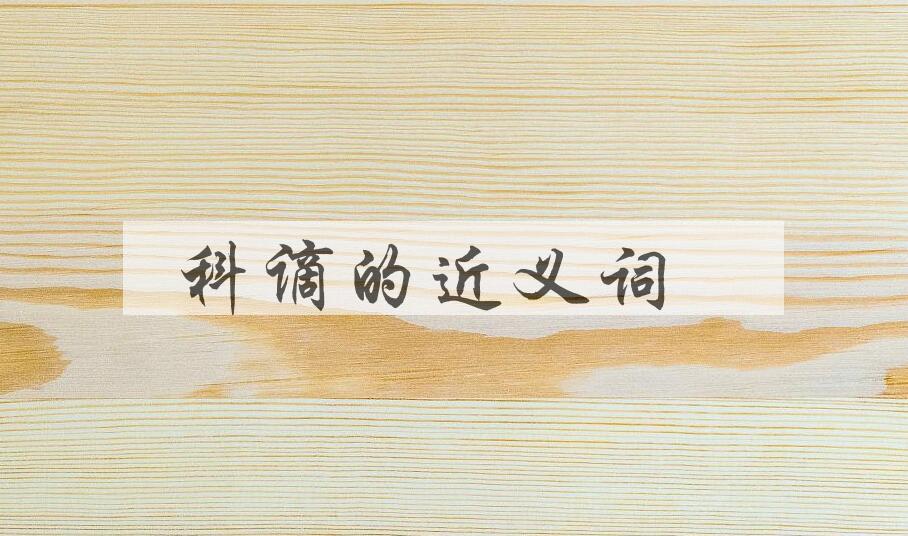 科谪的近义词